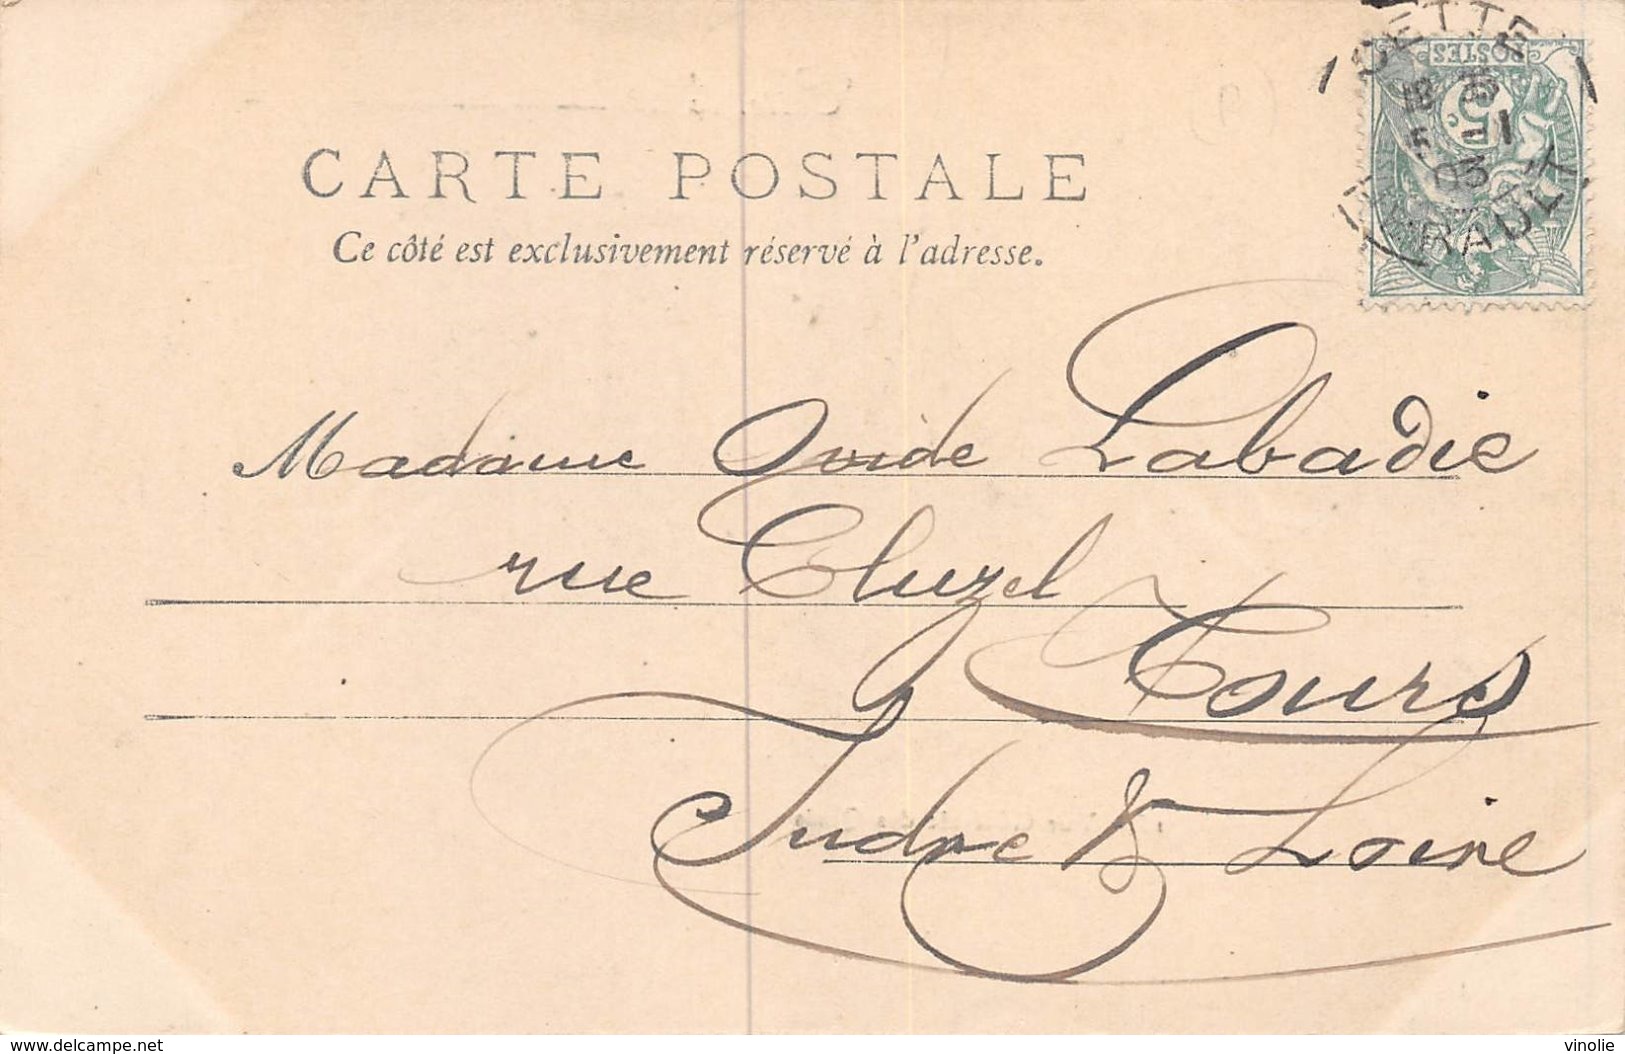 CARTE POSTALE
Ce côté est exclusivement réservé à l'adresse.
CETTE
5 -1
03
HÉRAULT
POSTES
5c
Madame Ovide Labadie
rue Cluzel
Tours
Indre & Loire
delcampe.net
vinolie